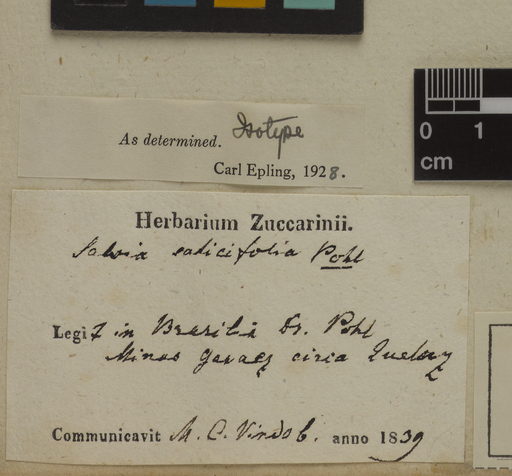 As determined. Isotype
Carl Epling, 1928.
0 1
cm
Herbarium Zuccarinii.
Salvia salicifolia Pohl
Legit in Brasilia Dr. Pohl
Minas Geraes circa
Communicavit M. C. Vindob. anno 1839